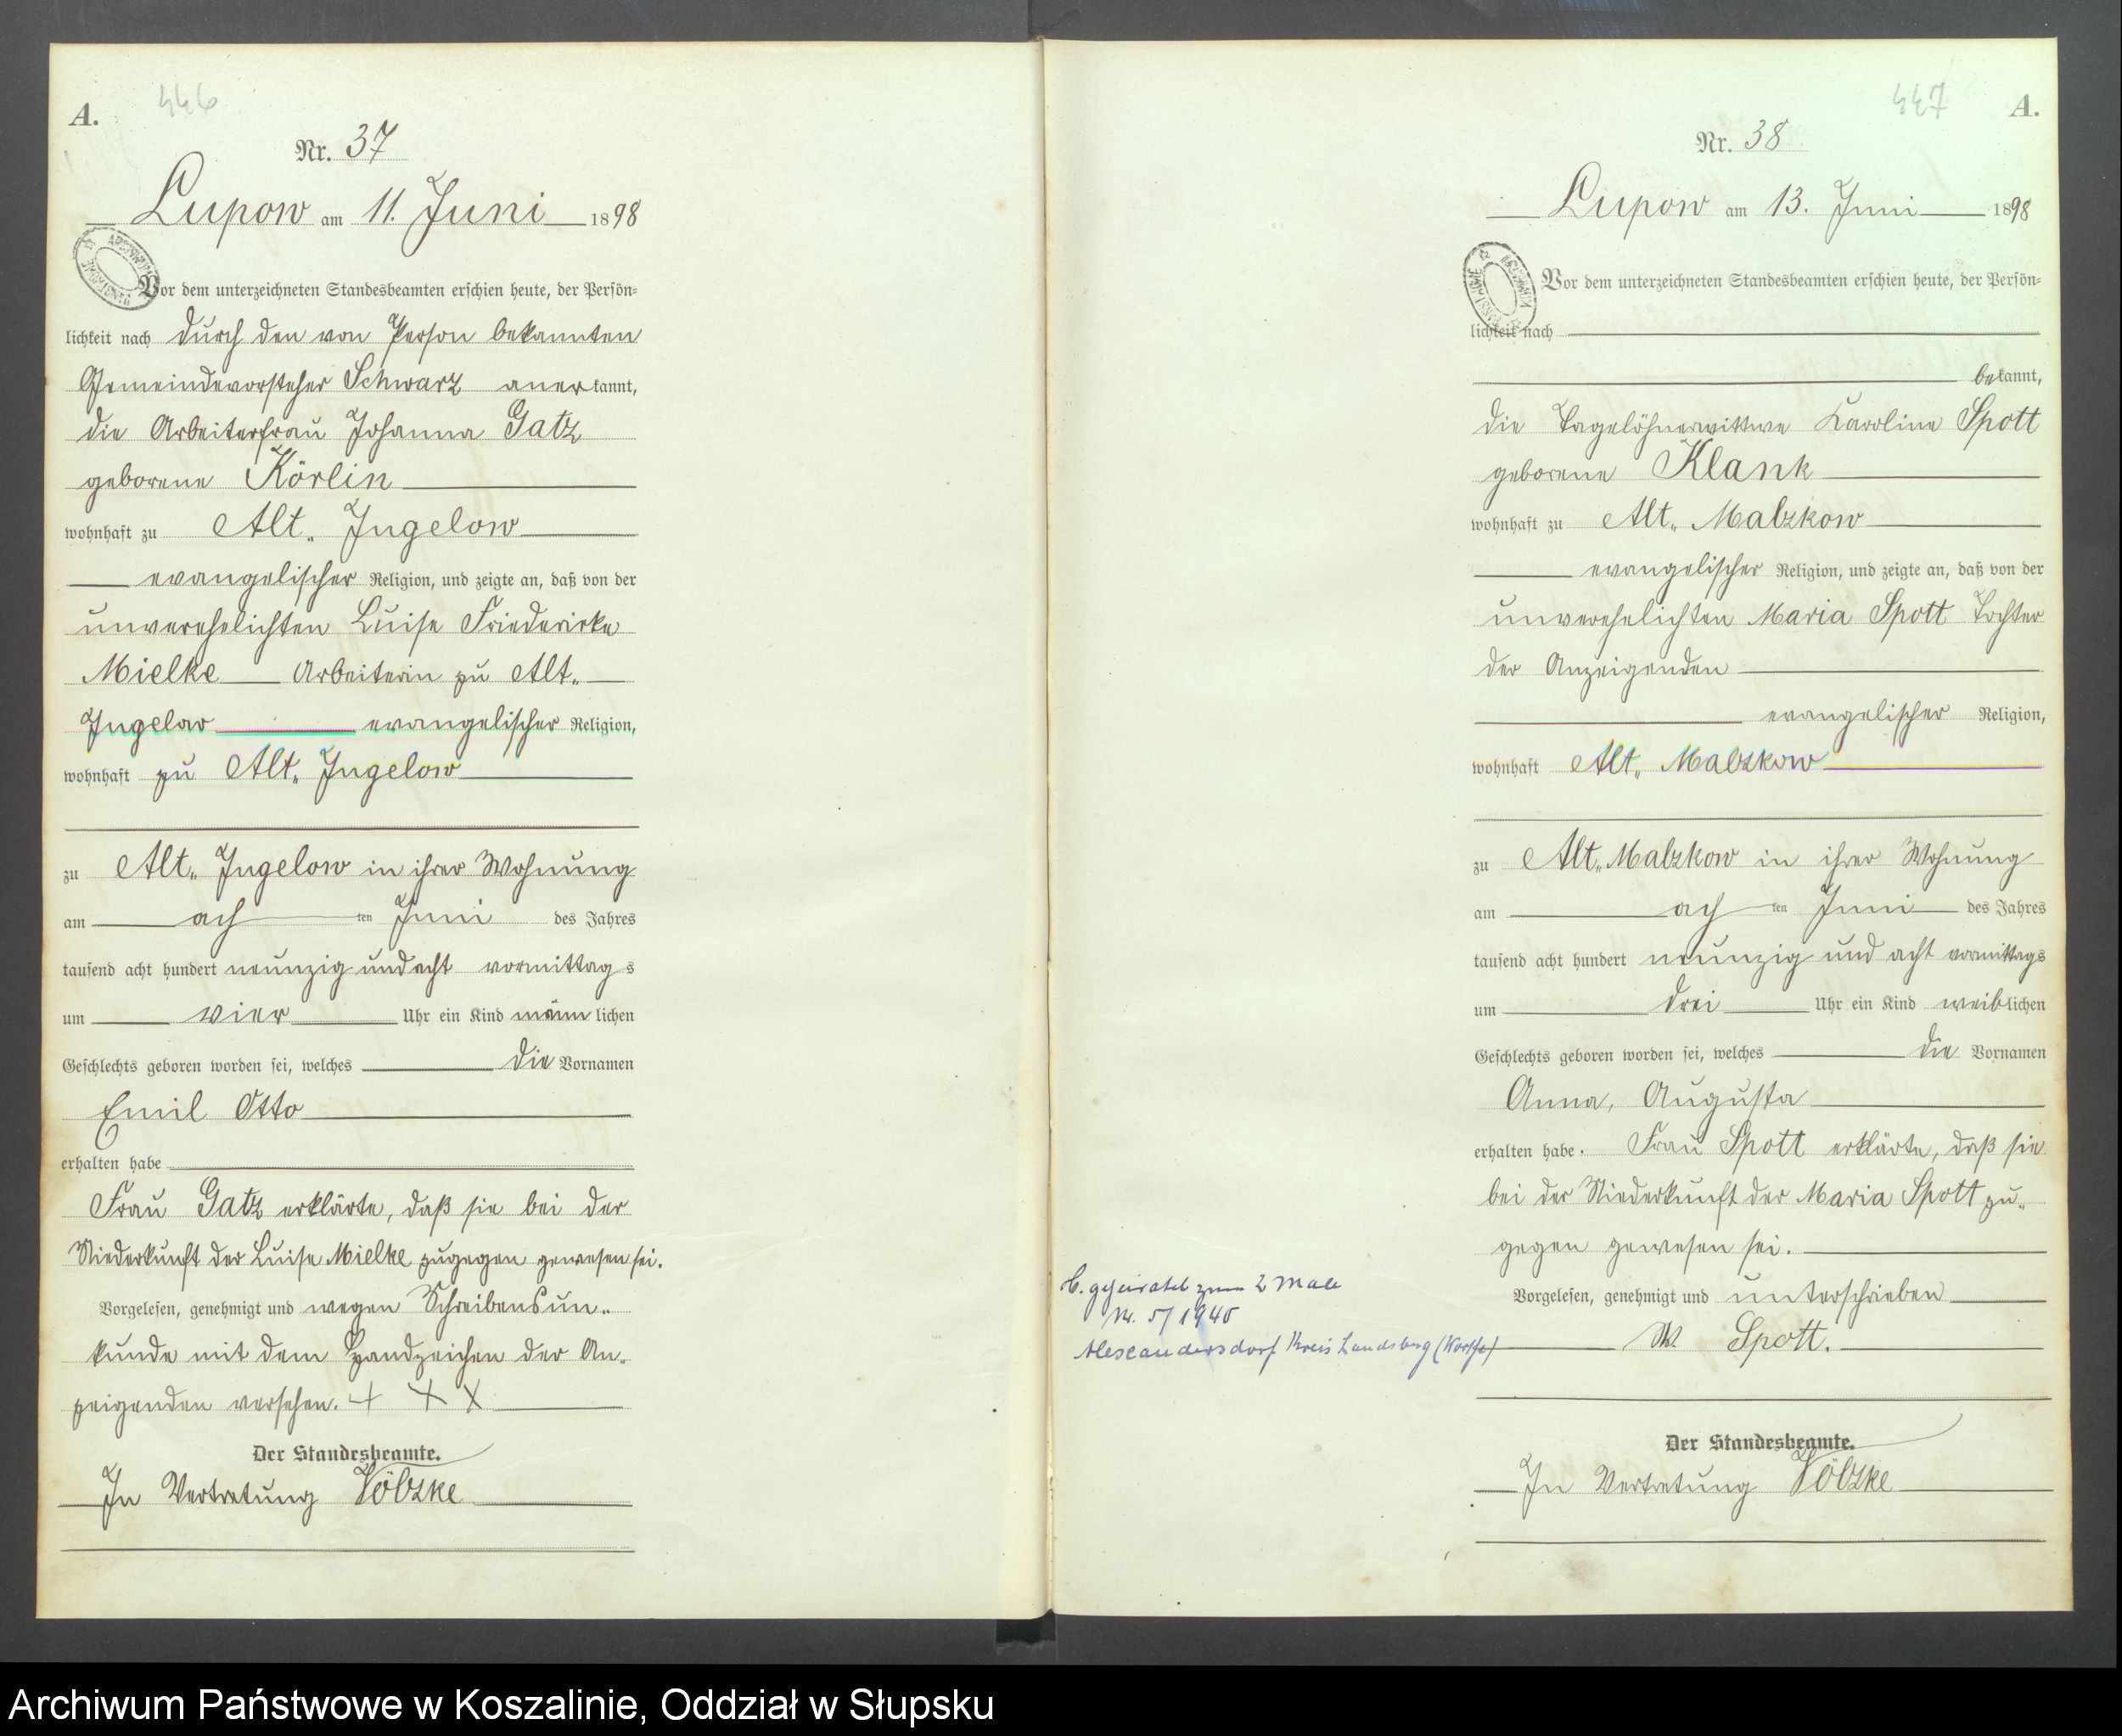 A.
446
Nr. 37
Lupow am 11. Juni 1898
Vor dem unterzeichneten Standesbeamten erschien heute, der Persön=
lichkeit nach durch den von Person bekannten
Gemeindevorsteher Schwarz anerkannt,
die Arbeiterfrau Johanna Gatz
geborene Körlin
wohnhaft zu Alt„ Jugelow
evangelischer Religion, und zeigte an, daß von der
unverehelichten Luise Friedericke
Mielke Arbeiterin zu Alt„
Jugelow evangelischer Religion,
wohnhaft zu Alt„ Jugelow
zu Alt„ Jugelow in ihrer Wohnung
am ach ten Juni des Jahres
tausend acht hundert neunzig und acht vormittags
um vier Uhr ein Kind männlichen
Geschlechts geboren worden sei, welches die Vornamen
Emil Otto
erhalten habe
Frau Gatz erklärte, daß sie bei der
Niederkunft der Luise Mielke zugegen gewesen sei.
Vorgelesen, genehmigt und wegen Schreibensun„
kunde mit dem Handzeichen der An„
zeigenden versehen. + + +
Der Standesbeamte.
In Vertretung Völzke
447
A.
Nr. 38
Lupow am 13. Juni 1898
Vor dem unterzeichneten Standesbeamten erschien heute, der Persön=
lichkeit nach
bekannt,
die Tagelöhnerwittwe Karoline Spott
geborene Klank
wohnhaft zu Alt„ Malzkow
evangelischer Religion, und zeigte an, daß von der
unverehelichten Maria Spott Tochter
der Anzeigenden
evangelischer Religion,
wohnhaft Alt„ Malzkow
zu Alt„ Malzkow in ihrer Wohnung
am ach ten Juni des Jahres
tausend acht hundert neunzig und acht vormittags
um drei Uhr ein Kind weiblichen
Geschlechts geboren worden sei, welches die Vornamen
Anna, Augusta
erhalten habe. Frau Spott erklärte, daß sie
bei der Niederkunft der Maria Spott zu„
gegen gewesen sei.
Vorgelesen, genehmigt und unterschrieben
W. Spott.
Der Standesbeamte.
In Vertretung Völzke
geheiratet zum 2 Male
Nr. 5/1940
Alexandersdorf Kreis Landsberg (Warthe)
Archiwum Państwowe w Koszalinie, Oddział w Słupsku